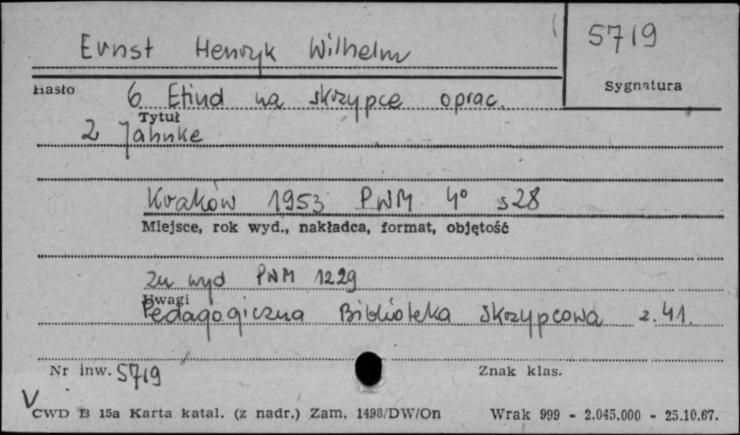 Ernst Henryk Wilhelm
5719
Hasło
Sygnatura
6 Etiud na skrzypce oprac.
Tytuł
Z Jahnke
Kraków 1953 PWM 4° s 28
Miejsce, rok wyd., nakładca, format, objętość
Zn wyd PWM 1229
Uwagi
Pedagogiczna Biblioteka skrzypcowa z. 41.
Nr inw. 5719
Znak klas.
V
CWD B 15a Karta katal. (z nadr.) Zam. 1498/DW/On Wrak 999 - 2.045.000 - 25.10.67.